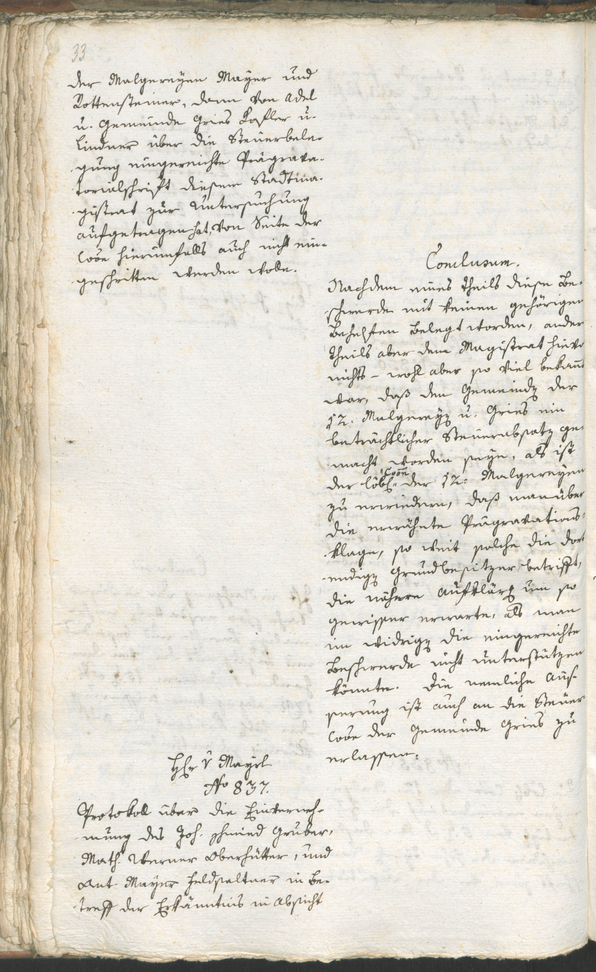 33
der Malgereyen Mayer und
Rottensteiner, dann von Adel
u. Gemeinde Gries Kofler u.
Lindner über die Steuerbele¬
gung eingereichte Prägrava¬
torialschrift diesem Stadtma¬
gistrat zur Untersuchung
aufgetragen hat, von Seite der
Coõn hierinfalls auch nicht ein¬
geschritten werden wolle.
Conclusum.
Nachdem eines Theils diese Be¬
schwerde mit keinen gehörigen
Behelfen belegt worden, ander
Theils aber dem Magistrat hierü
nichts – wohl aber so viel bekannt
war, daß den Gemeinden der
12. Malgereyen u. Gries ein
beträchtlicher Steuerabsatz ge¬
macht worden seye, als ist
der löbl. Coõn der 12. Malgereyen
zu erwiedern, daß man über
die erwähnte Prägravations¬
klage, so weit solche die dort
endigen Grundbesitzer betrifft,
die nähere Aufklärung um so
gewisser erwarte, als man
im widrigen die eingereichte
Beschwerde nicht unterstützen
könnte. Die nemliche Äus¬
serung ist auch an die Steuer
Coõn der Gemeinde Gries zu
erlassen.
No 837.
Protokol über die Einverneh¬
mung des Joh. Schmied Gruber,
Math. Werner Oberhütter, und
Ant. Mayer Feldsaltner in Be¬
treff der Erkänntnis in Absicht